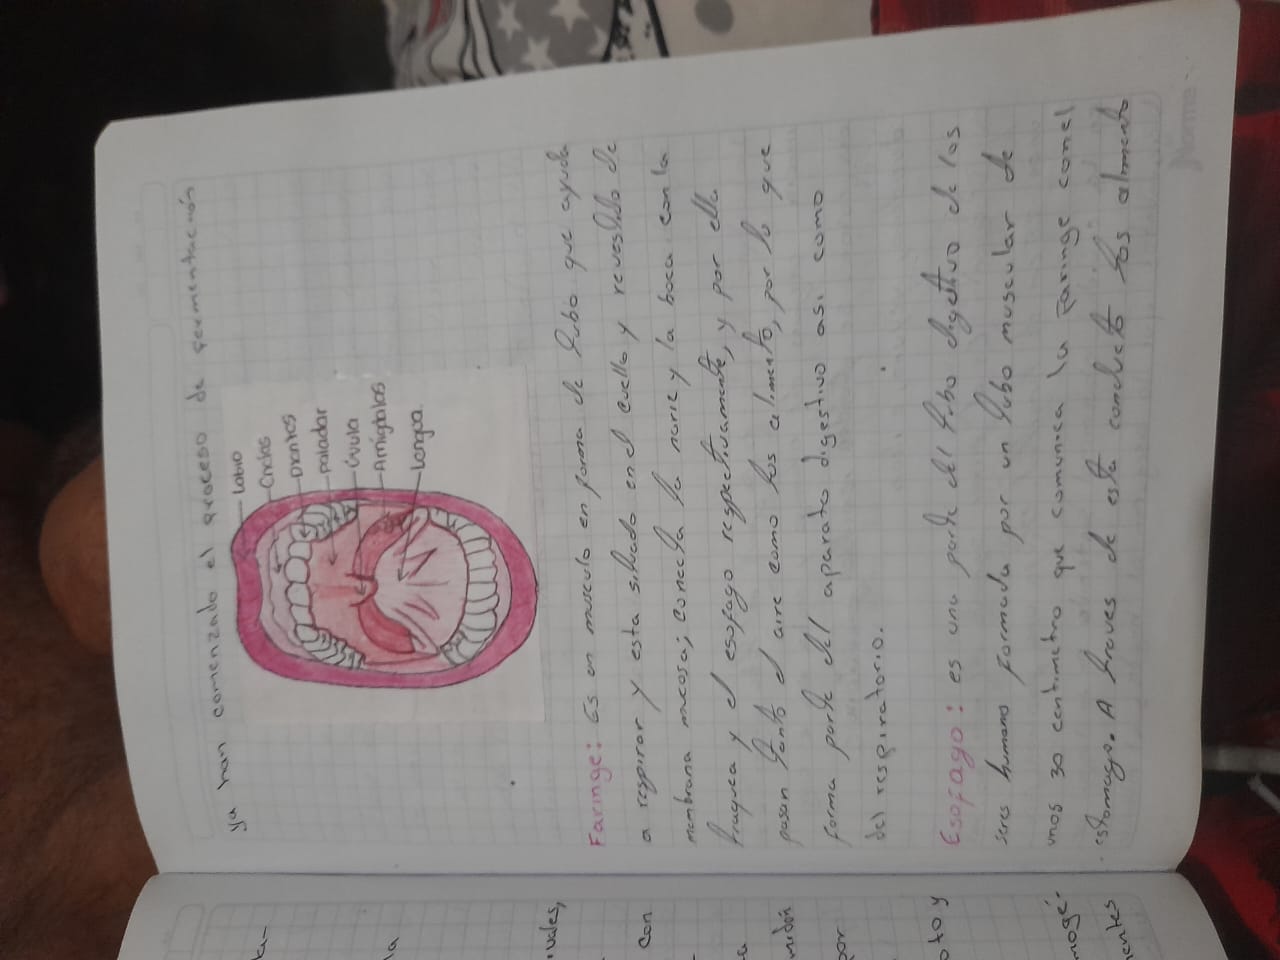 ya han comenzado el proceso de fermentación
Labio
Encías
Dientes
paladar
Úvula
Amígdalas
Lengua
Faringe: Es un musculo en forma de tubo que ayuda
a respirar y esta situado en el cuello y revestido de
membrana mucosa; conecta la nariz y la boca con la
traquea y el esofago respectivamente, y por ella
pasan tanto el aire como los alimento, por lo que
forma parte del aparato digestivo asi como
del respiratorio.
Esofago: es una parte del tubo digestivo de los
seres humanos formada por un tubo muscular de
unos 30 centimetro que comunica la faringe con el
estomago. A traves de esta conducto los alimento
Norma
ta-
la
uales,
con
a
midón
por
oto y
mogé-
mentes